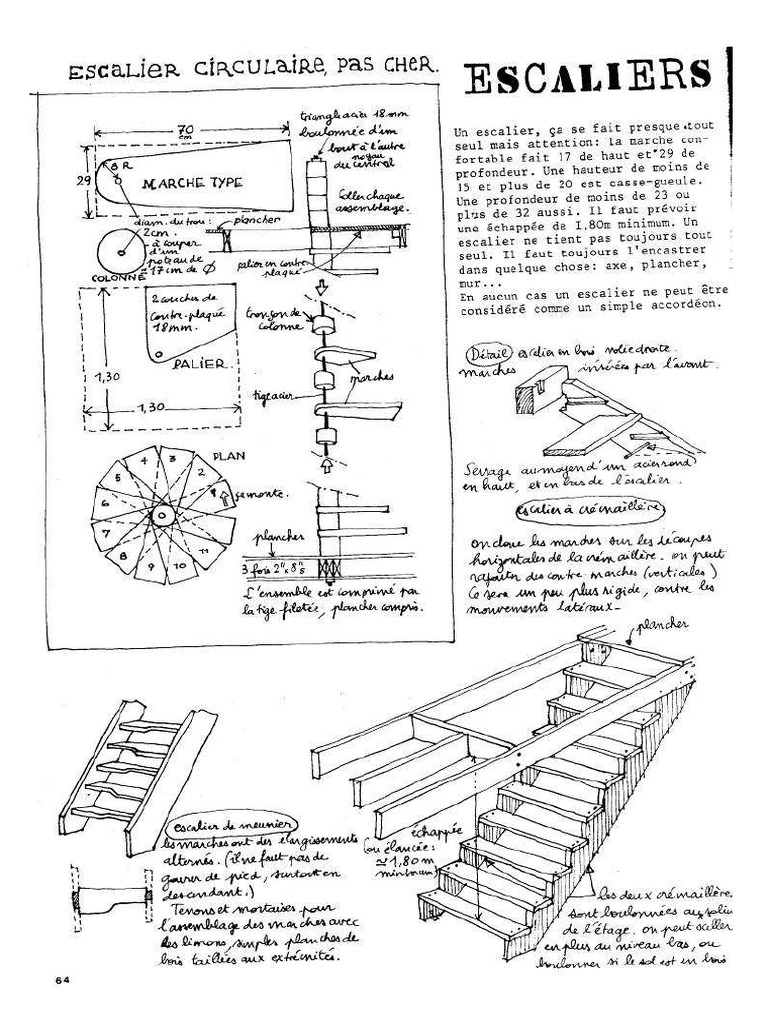 ESCALIER CIRCULAIRE, PAS CHER.
ESCALIERS
Un escalier, ça se fait presque tout
seul mais attention: la marche con-
fortable fait 17 de haut et 29 de
profondeur. Une hauteur de moins de
15 et plus de 20 est casse-gueule.
Une profondeur de moins de 23 ou
plus de 32 aussi. Il faut prévoir
une échappée de I,80m minimum. Un
escalier ne tient pas toujours tout
seul. Il faut toujours l'encastrer
dans quelque chose: axe, plancher,
mur...
En aucun cas un escalier ne peut être
considéré comme un simple accordéon.
70
cm
29
R
MARCHE TYPE
diam. du trou:
2cm.
à couper
d'un
poteau de
17cm de Ø
COLONNE
tringle acier 18mm
boulonnée d'un
bout à l'autre
du noyau
central
coller chaque
assemblage.
plancher
palier en contre
plaqué
2 couches de
contre-plaqué
18mm.
PALIER.
1,30
1,30
tronçon de
colonne
marches
tige acier
PLAN
1
2
3
4
5
6
7
8
9
10
11
ça monte.
planches
3 fois 2" x 8"
L'ensemble est comprimé par
la tige filetée, plancher compris.
Détail escalier en bois volée droite.
marches insérées par l'avant.
Serrage au moyen d'un acier rond
en haut, et en bas de l'escalier.
escalier à crémaillère
on cloue les marches sur les découpes
horizontales de la crémaillère. on peut
rajouter des contre-marches (verticales)
Ce sera un peu plus rigide, contre les
mouvements latéraux-
plancher
échappée
(ou élancée:
≃ 1,80m
minimum)
escalier de meunier
les marches ont des élargissements
alternés. (il ne faut pas se
gourer de pied, surtout en
descendant.)
Tenons et mortaises pour
l'assemblage des marches avec
les limons, simples planches de
bois taillées aux extrémités.
les deux crémaillère.
sont boulonnées au solin
de l'étage. on peut sceller
en plus au niveau bas, ou
boulonner si le sol est en bois
64